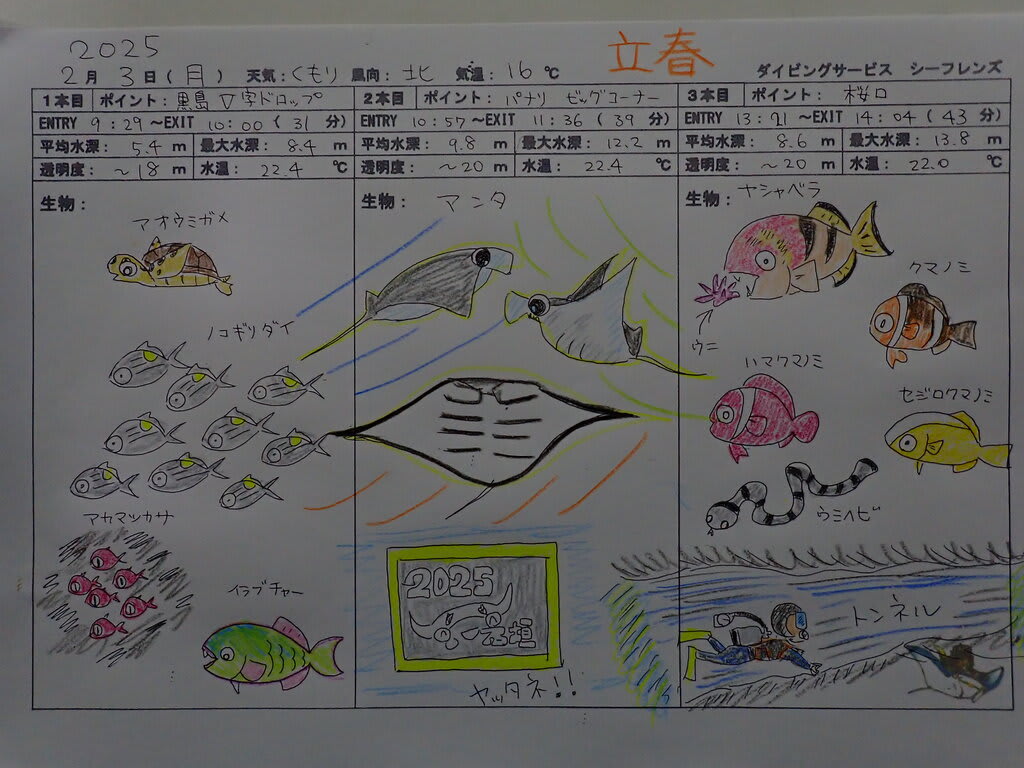 2025
立春
2月 3日(月) 天気:くもり 風向:北 気温:16℃
ダイビングサービス シーフレンズ
1本目 ポイント:黒島 V字ドロップ
ENTRY 9:29~EXIT 10:00(31分)
平均水深: 5.4 m 最大水深: 8.4 m
透明度: ~18 m 水温: 22.4 ℃
生物:
アオウミガメ
ノコギリダイ
アカマツカサ
イラブチャー
2本目 ポイント:パナリ ビッグコーナー
ENTRY 10:57~EXIT 11:36(39分)
平均水深: 9.8 m 最大水深: 12.2 m
透明度: ~20 m 水温: 22.4 ℃
生物: マンタ
2025
石垣
ヤッタネ!!
3本目 ポイント: 桜口
ENTRY 13:21~EXIT 14:04(43分)
平均水深: 8.6 m 最大水深: 13.8 m
透明度: ~20 m 水温: 22.0 ℃
生物:
ナシャベラ
ウニ
クマノミ
ハマクマノミ
セジロクマノミ
ウミヘビ
トンネル